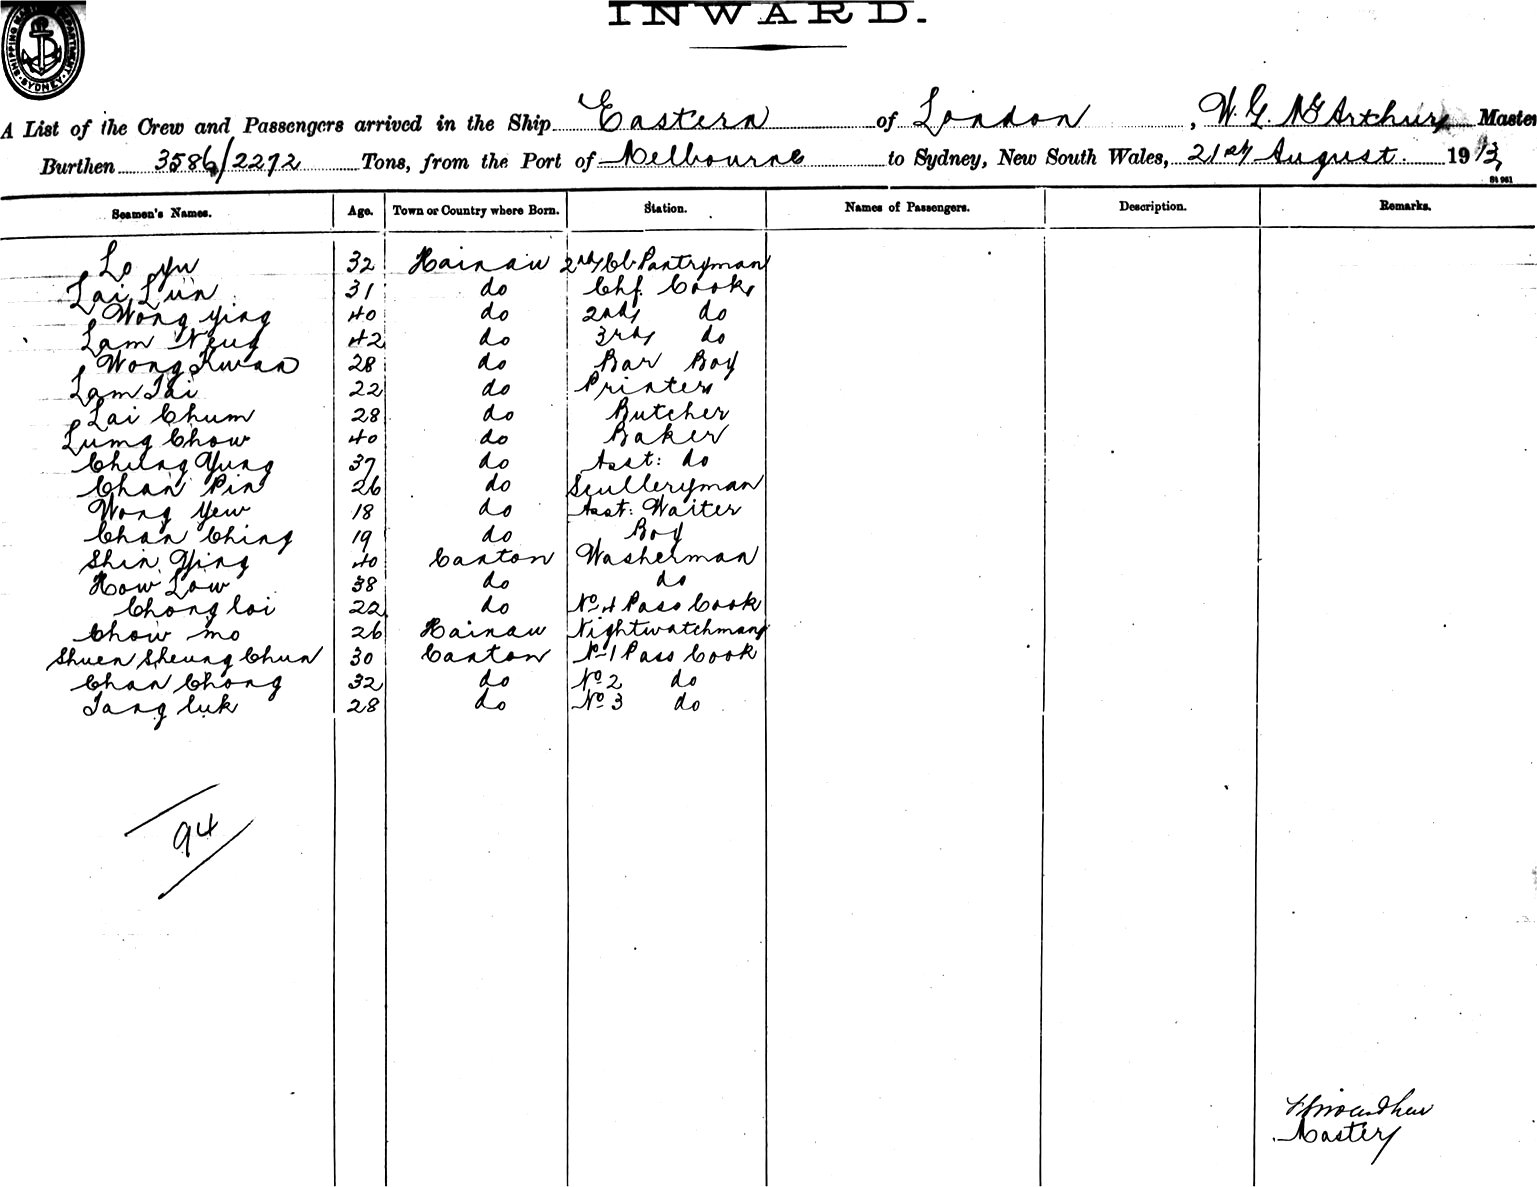 SHIPPING MASTER DEPARTMENT SYDNEY
INWARD.
A List of the Crew and Passengers arrived in the Ship Eastern of London, W. G. McArthur Master
Burthen 3586/2272 Tons, from the Port of Melbourne to Sydney, New South Wales, 21st August 1913
St 961
Seamen's Names. Age. Town or Country where Born. Station. Names of Passengers. Description. Remarks.
Lo Yu 32 Hainau 2nd Cb Pantryman
Lai Lun 31 do Chf. Cook
Wong Ying 40 do 2nd do
Lam Neug 42 do 3rd do
Wong Kwan 28 do Bar Boy
Lam Tai 22 do Printer
Lai Chum 28 do Butcher
Lumg Chow 40 do Baker
Cheung Yung 37 do Asst: do
Chan Pin 26 do Sculleryman
Wong Yew 18 do Asst: Waiter
Chan Ching 19 do Boy
Shin Ying 40 Canton Washerman
How Low 38 do do
Chong Loi 22 do No. 4 Pass Cook
Chow Mo 26 Hainau Nightwatchman
Shuen Sheung Chun 30 Canton No. 1 Pass Cook
Chan Chong 32 do No. 2 do
Tang Luk 28 do No. 3 do
94
Master